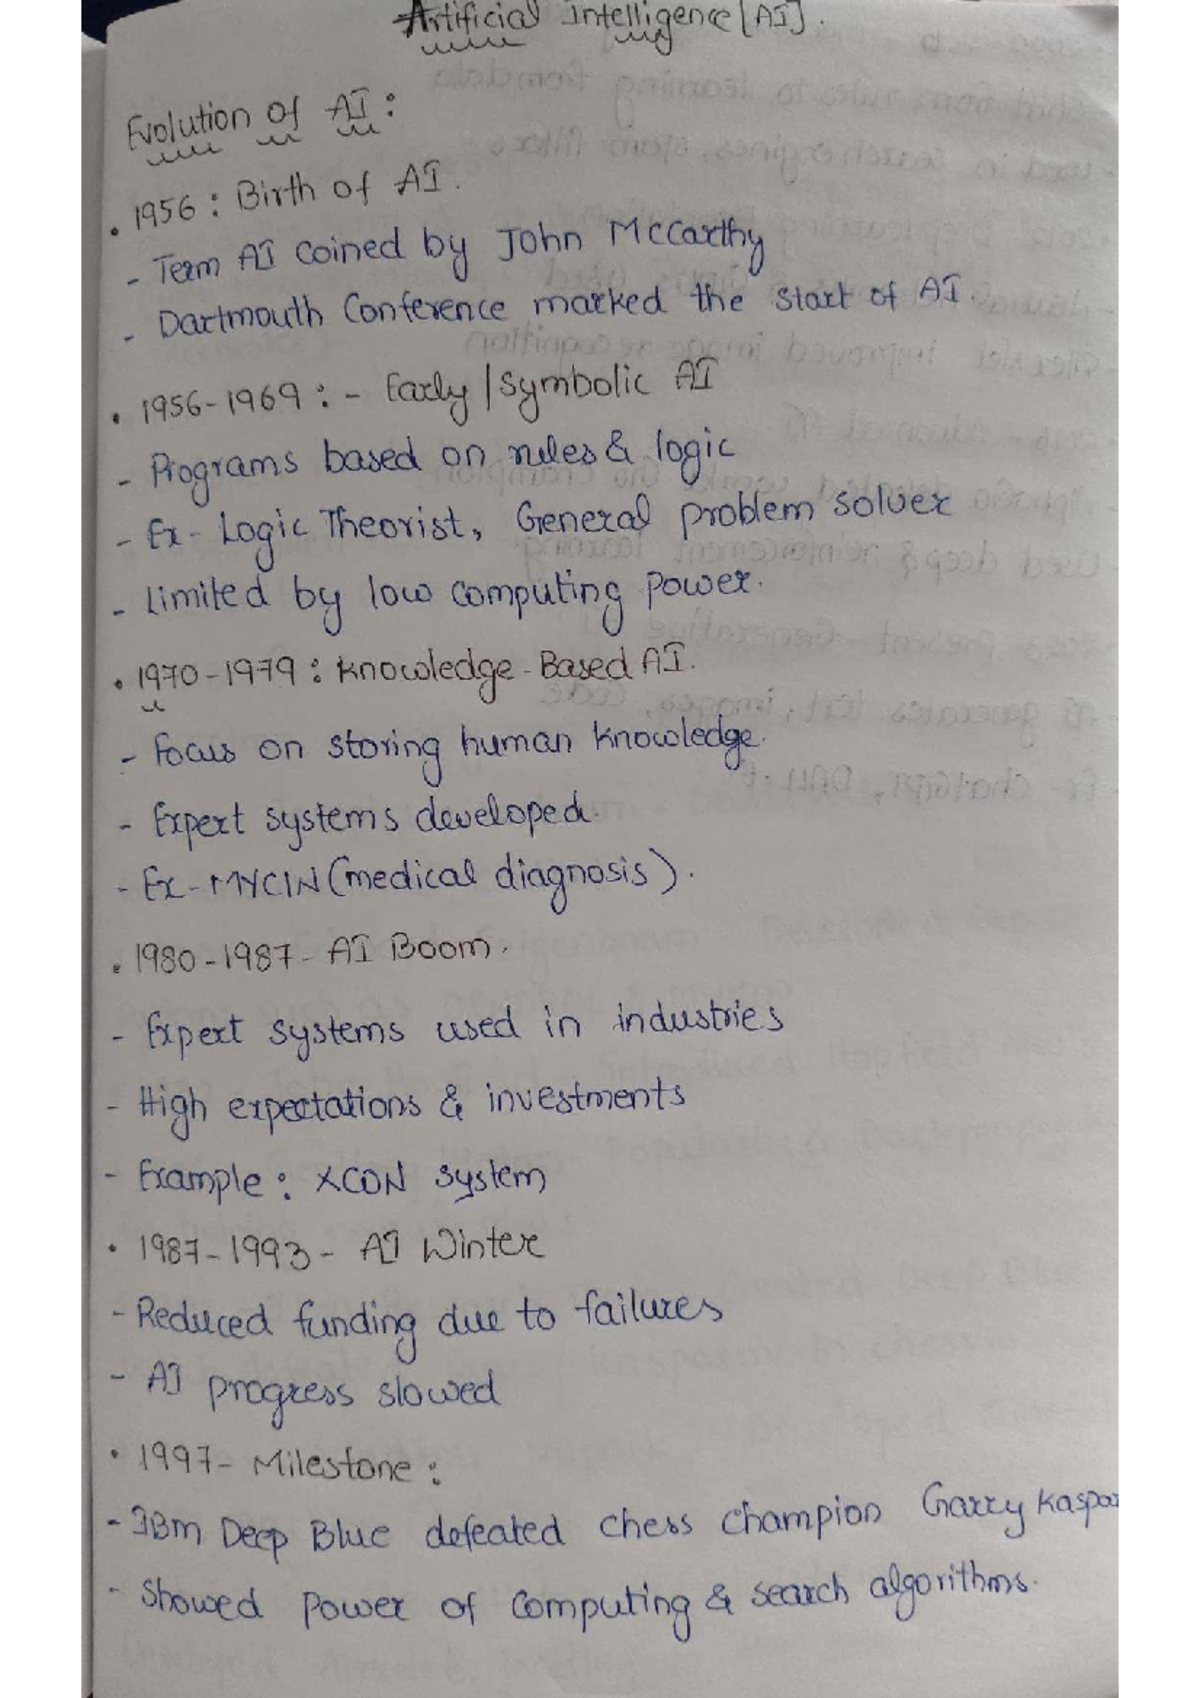 Artificial Intelligence [AI].
Evolution of AI:
• 1956: Birth of AI.
- Team AI coined by John McCarthy
- Dartmouth Conference marked the start of AI.
• 1956-1969:- Early/Symbolic AI
- Programs based on rules & logic
- Ex- Logic Theorist, General problem solver
- Limited by low computing power.
• 1970-1979: Knowledge-Based AI.
- Focus on storing human knowledge.
- Expert systems developed.
- Ex- MYCIN (medical diagnosis).
• 1980-1987- AI Boom.
- Expert systems used in industries
- High expectations & investments
- Example: XCON system
• 1987-1993- AI Winter
- Reduced funding due to failures
- AI progress slowed
• 1997- Milestone:
- IBm Deep Blue defeated chess champion Garry Kaspar
- Showed power of computing & search algorithms.